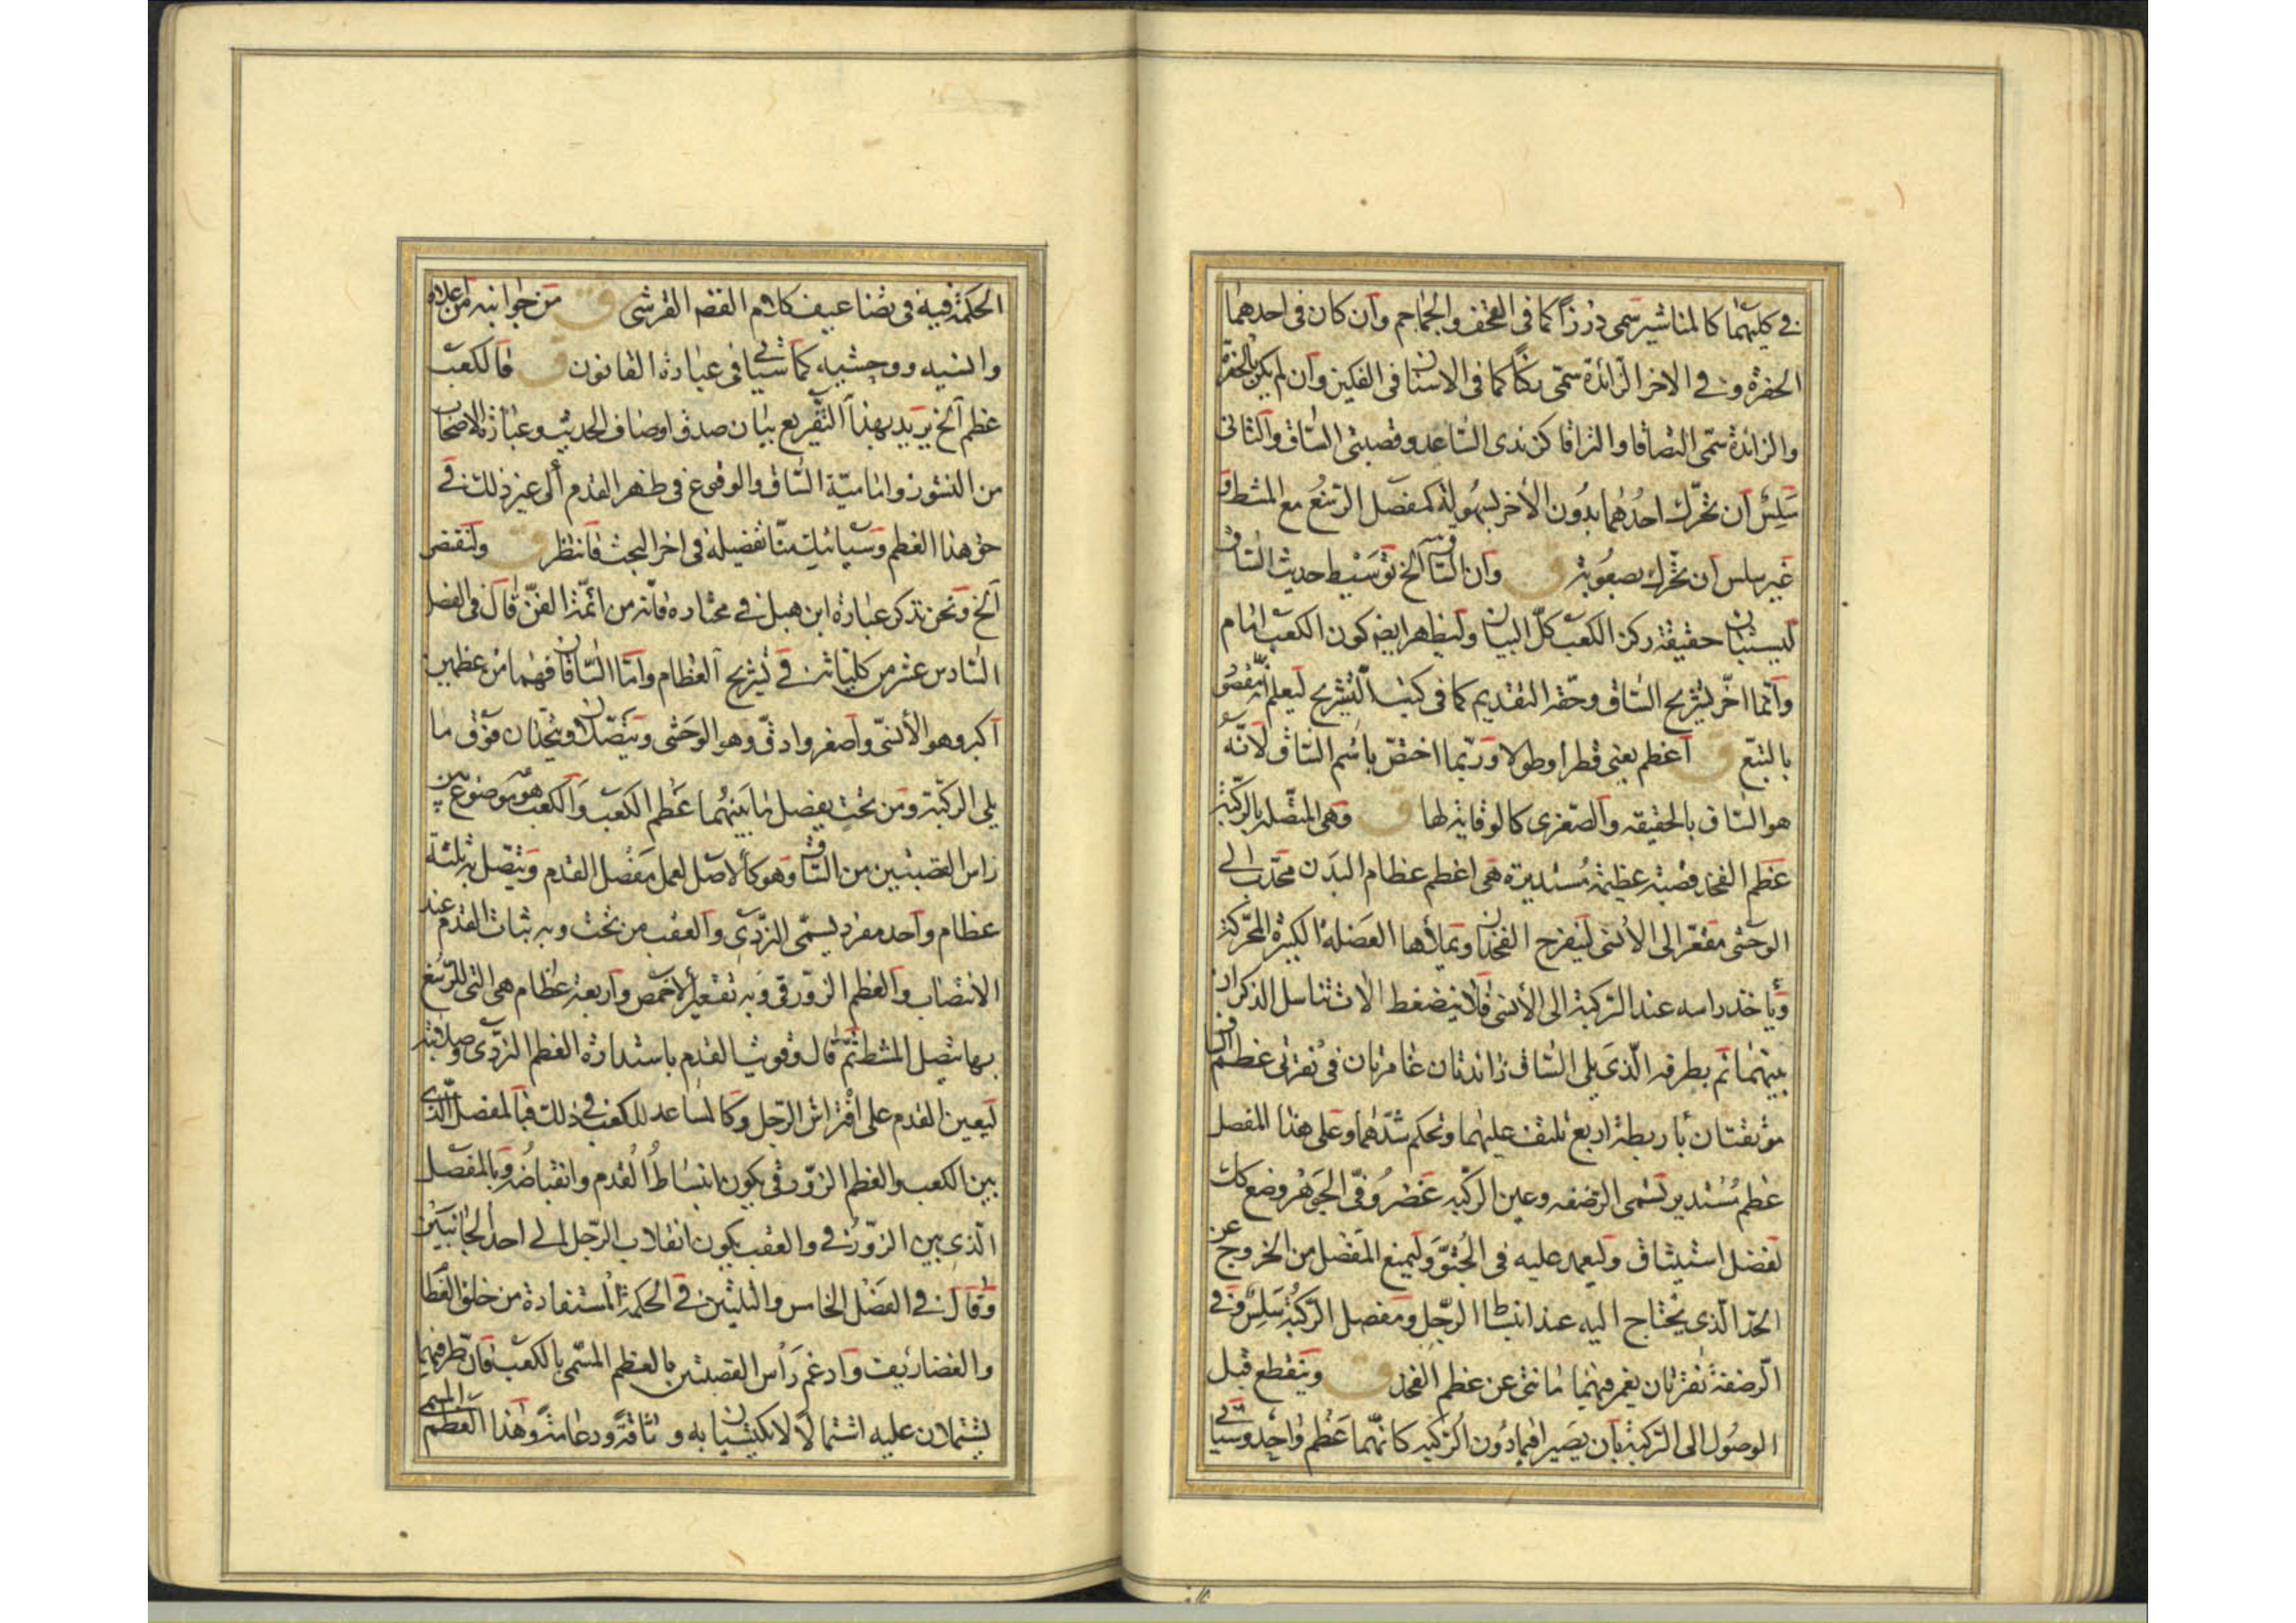 في كليهما كالمناشير سمى درزا كما في القحف والجماجم وان كان في احدهما
الحفرة وفي الاخر الزائدة سمى ركزا كما في الاسنان في الفكين وان لم يكن بالحفرة
والزائدة سمى التصاقا والتزاقا كزندى الساعد وقصبتى الساق والثانى
سلس ان تحرك احدهما بدون الاخر بسهولة كمفصل الرسغ مع المشط و
غير سلس ان تحرك بصعوبة ق وان الساق الخ توسيط حديث الساق
ليستبان حقيقة ركن الكعب كل البيان وليظهر ايضا كون الكعب امام
وانما اخر تشريح الساق وحقه التقديم كما في كتب التشريح ليعلم انه مقصود
بالتبع ق اعظم يعنى قطرا وطولا وربما اختص باسم الساق لانه
هو الساق بالحقيقه والصغرى كالوقاية لها ق وهى المتصلة بالركبة
عظم الفخذ قصبة عظيمة مستديرة هى اعظم عظام البدن محدب الى
الوحشى مقعر الى الأنسى ليفرج الفخذان ويملأها العضلة الكبيرة المحركة
ويأخذ راسه عند الركبة الى الأنسى فلا ينضغط الات تناسل الذكران
بينهما ثم بطرفه الذى يلى الساق زائدتان غامزتان في نقرتى عظم الساق
موثقتان بأربطة اربع تلتف عليهما وتحكم شدهما وعلى هذا المفصل
عظم مستدير تسمى الرضفه وعين الركبه غضروفى الجوهر وضع كك
لفضل استيثاق وليعمد عليه في الجثو وليمنع المفصل من الخروج عن
الحد الذى يحتاج اليه عند انبطا الرجل ومفصل الركبة سلس وفي
الرضفة نقرتان يغمر فيهما ما نتى عن عظم الفخذ ق وينقطع قبل
الوصول الى الركبة بأن يصير افيما دون الركبه كانهما عظم واحد وسياتى
الحكمة فيه في تضاعيف كلام الفضه القرشى ق من جوانبه من اعلاه
وانسيه ووحشيه كما سياتى في عبارة القانون ق فالكعب
عظم الخ يريد بهذا التفريع بيان صدق اوصاف الحديث وعبارة الاصحاب
من النشوز وامامية الساق والوقوع في ظهر القدم الى غير ذلك في
حق هذا العظم وسياتيك منا تفصيله في اخر البحث فانتظر ق ولنقتصر
الخ ونحن نذكر عبارة ابن هبل في مختاره فانه من ائمة الفن قال في الفصل
السادس عشر من كلياته في تشريح العظام واما الساقان فهما من عظمين
اكبر وهو الأنسى واصغر وادق وهو الوحشى ويتصلان ويتحدان فوق ما
يلى الركبة ومن تحت يفصل ما بينهما عظم الكعب والكعب هو موضوع بين
راس القصبتين من الساق وهو كالاصل لعمل مفصل القدم ويتصل به ثلثة
عظام واحد مفرد يسمى النردى والعقب من تحت وبه ثبات القدم عند
الانتصاب والعظم الزورقى وبه تقعير الأخمص واربعة عظام هى التى للرسغ
بها يتصل المشط ثم قال وقويت القدم باستدارة العظم النردى وصلابته
ليعين القدم على افتراش الرجل وكالمساعد للكعب في ذلك فبالمفصل الذى
بين الكعب والعظم الزورقى يكون انبساط القدم وانقباضه وبالمفصل
الذى بين الزورقي والعقب يكون انقلاب الرجل الى احد الجانبين
وقال في الفصل الخامس والثلثين في الحكمة المستفادة من خلق العظام
والغضاريف وادغم رأس القصبتين بالعظم المسمى بالكعب فان طرفيهما
يشتملان عليه اشتمالا لا يكتسبان به وثاقة ودعامة وهذا العظم المسمى